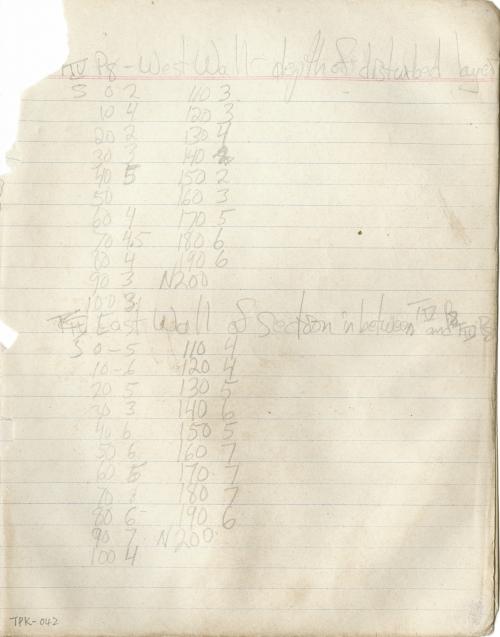 TIV P8 - West Wall - depth of disturbed layer
S 0 2 110 3
10 4 120 3
20 2 130 4
30 3 140
40 5 150 2
50 160 3
60 4 170 5
70 4.5 180 6
80 4 190 6
90 3 N200
100 3
East Wall of Section in between TIV P8 and P8
S 0-5 110 4
10-6 120 4
20 5 130 5
30 3 140 6
40 6 150 5
50 6 160 7
60 5 170 7
70 180 7
80 6 190 6
90 7 N200
100 4
TPK-042